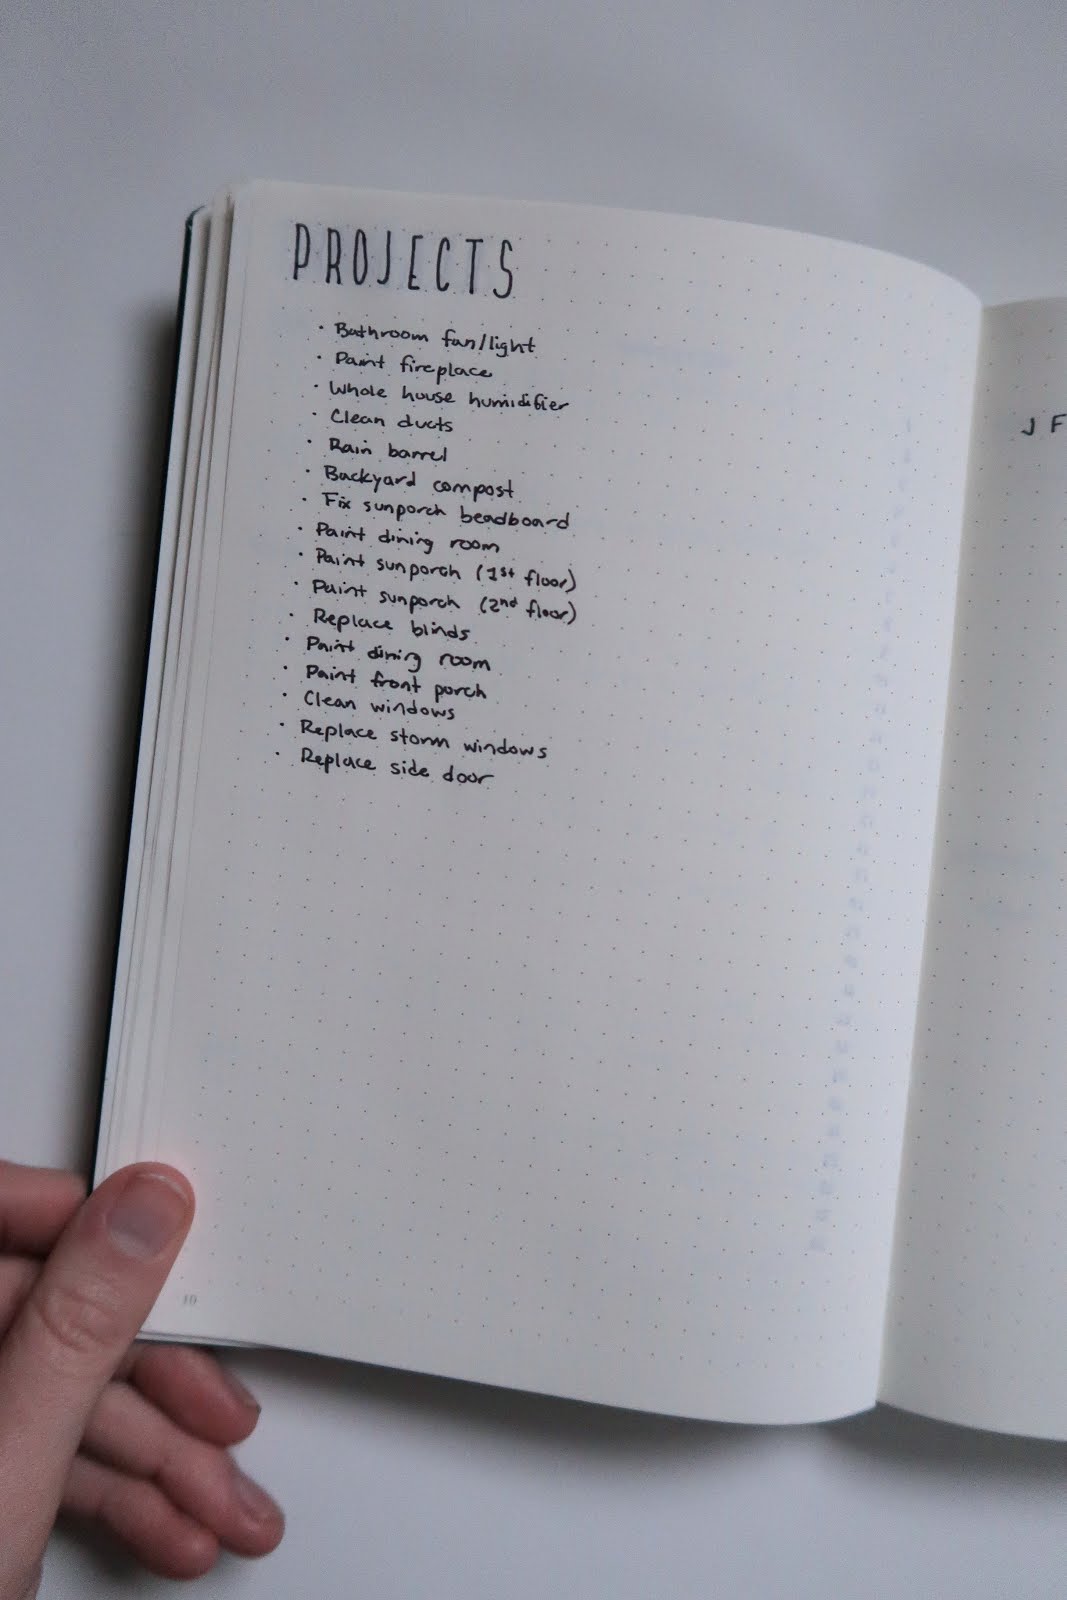 PROJECTS
· Bathroom fan/light
· Paint fireplace
· Whole house humidifier
· Clean ducts
· Rain barrel
· Backyard compost
· Fix sunporch beadboard
· Paint dining room
· Paint sunporch (1st floor)
· Paint sunporch (2nd floor)
· Replace blinds
· Paint dining room
· Paint front porch
· Clean windows
· Replace storm windows
· Replace side door
10
J F